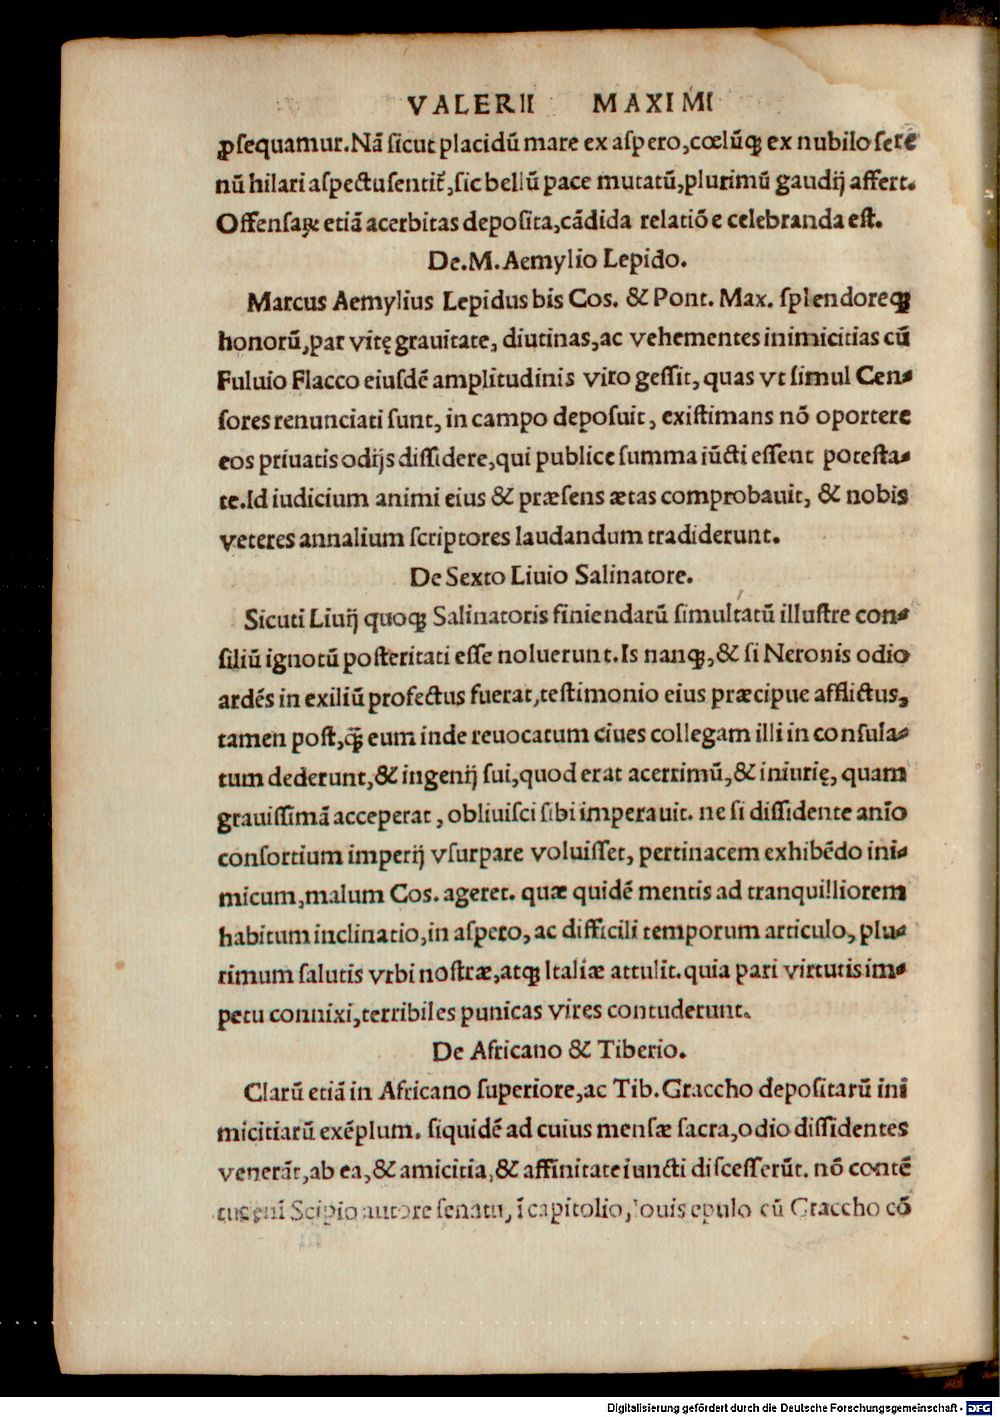 VALERII MAXIMI
ꝓsequamur.Nā ſicut placidū mare ex aſpero,cœlūqꝫ ex nubilo ſerē
nū hilari aſpectu sentit᷑,ſic bellū pace mutatū,plurimū gaudij affert.
Offenſaꝝ etiā acerbitas depoſita,cādida relatiōe celebranda eſt.
De.M.Aemylio Lepido.
Marcus Aemylius Lepidus bis Cos. & Pont. Max. ſplendoreqꝫ
honorū,par vitę grauitate, diutinas,ac vehementes inimicitias cū
Fuluio Flacco eiuſdē amplitudinis viro geſſit, quas vt ſimul Cen-
ſores renunciati ſunt, in campo depoſuit, exiſtimans nō oportere
eos priuatis odijs diſſidere,qui publice ſumma iūcti eſſent poteſta-
te.Id iudicium animi eius & præſens ætas comprobauit, & nobis
veteres annalium ſcriptores laudandum tradiderunt.
De Sexto Liuio Salinatore.
Sicuti Liuij quoqꝫ Salinatoris finiendarū ſimultatū illuſtre con-
ſiliū ignotū poſteritati eſſe noluerunt.Is nanqꝫ,& ſi Neronis odio
ardēs in exiliū profectus fuerat,teſtimonio eius præcipue afflictus,
tamen poſt,q̄ꝫ eum inde reuocatum ciues collegam illi in conſula-
tum dederunt,& ingenij ſui,quod erat acerrimū,& iniurię, quam
grauiſſimā acceperat, obliuiſci ſibi imperauit. ne ſi diſſidente anīo
conſortium imperij vſurpare voluiſſet, pertinacem exhibēdo ini-
micum,malum Cos. ageret. quæ quidē mentis ad tranquilliorem
habitum inclinatio,in aſpero, ac difficili temporum articulo, plu-
rimum ſalutis vrbi noſtræ,atqꝫ Italiæ attulit.quia pari virtutis im-
petu connixi,terribiles punicas vires contuderunt.
De Africano & Tiberio.
Clarū etiā in Africano ſuperiore,ac Tib.Graccho depoſitarū ini
micitiarū exēplum. ſiquidē ad cuius menſæ ſacra,odio diſſidentes
venerāt,ab ea,& amicitia,& affinitate iuncti diſceſſerūt. nō contē
tus eni Scipio autore ſenatu, ī capitolio, Iouis epulo cū Graccho cō
Digitalisierung gefördert durch die Deutsche Forschungsgemeinschaft - DFG